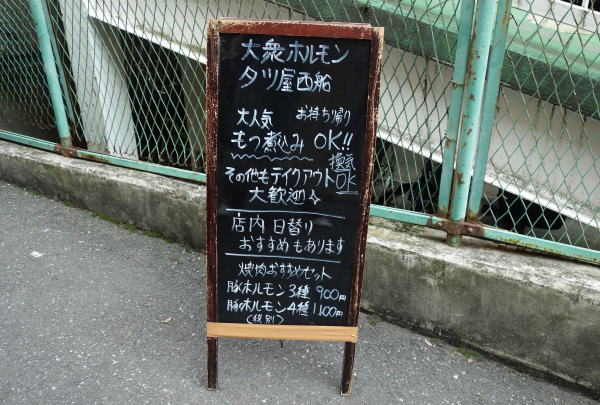 大衆ホルモン
タツ屋西船
大人気 お持ち帰り
もつ煮込み OK!!
換気OK
その他もテイクアウト
大歓迎♪
店内 日替り
おすすめもあります
焼肉おすすめセット
豚ホルモン3種 900円
豚ホルモン4種 1,100円
(税別)